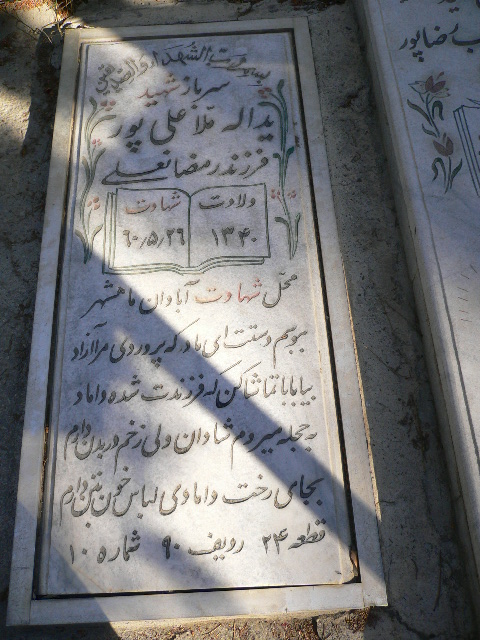 بسم رب الشهداء و الصدیقین
سرباز شهید
یداله ملا علی پور
فرزند رمضانعلی
ولادت شهادت
۱۳۴۰ ۶۰/۵/۲۶
محل شهادت آبادان ماهشهر
ببوسم دستت ای مادر که پروردی مرا آزاد
بیا بابا تماشا کن که فرزندت شده داماد
به حجله میروم شادان ولی زخم در بدن دارم
بجای رخت دامادی لباس خون بتن دارم
قطعه ۲۴ ردیف ۹۰ شماره ۱۰
رضا پور